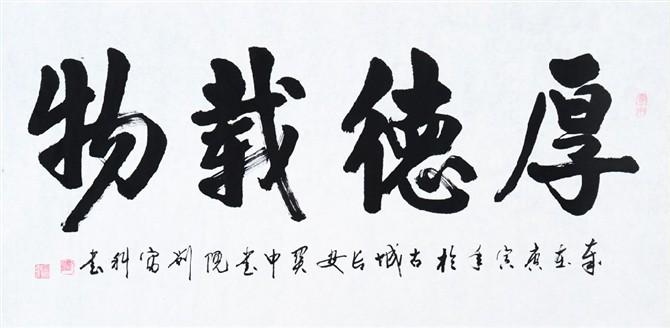 厚德載物
岁在庚寅年於古城长安中书院刘富科书